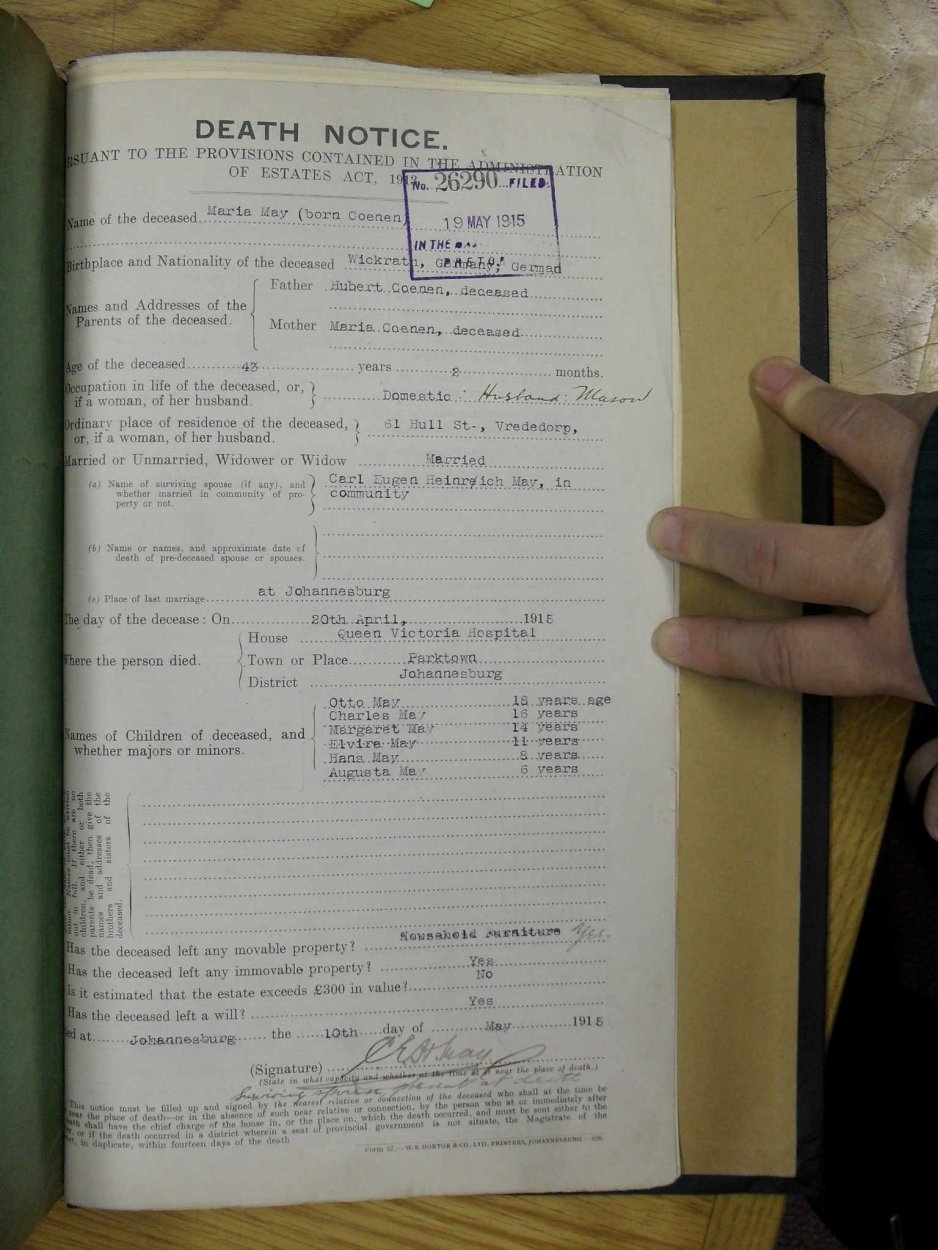 DEATH NOTICE.
RSUANT TO THE PROVISIONS CONTAINED IN THE ADMINISTRATION
OF ESTATES ACT, 1913
No. 26290 FILED
19 MAY 1915
IN THE
Name of the deceased Maria May (born Coenen)
Birthplace and Nationality of the deceased Wickrath, Germany, German
Names and Addresses of the Parents of the deceased.
Father Hubert Coenen, deceased
Mother Maria Coenen, deceased
Age of the deceased 43 years 2 months.
Occupation in life of the deceased, or, if a woman, of her husband. Domestic : Husband: Mason
Ordinary place of residence of the deceased, or, if a woman, of her husband. 61 Hull St-, Vrededorp,
Married or Unmarried, Widower or Widow Married
(a) Name of surviving spouse (if any), and whether married in community of property or not. Carl Eugen Heinreich May, in community
(b) Name or names, and approximate date of death of pre-deceased spouse or spouses.
(c) Place of last marriage at Johannesburg
The day of the decease : On 20th April, 1915
Where the person died.
House Queen Victoria Hospital
Town or Place Parktown
District Johannesburg
Names of Children of deceased, and whether majors or minors.
Otto May 18 years age
Charles May 16 years
Margaret May 14 years
Elvira May 11 years
Hans May 8 years
Augusta May 6 years
out in full. If there are no
children, and either or both
parents be dead, then give the
names and addresses of the
brothers and sisters of the
deceased.
Has the deceased left any movable property? Household Furniture Yes.
Has the deceased left any immovable property? Yes
Is it estimated that the estate exceeds £300 in value? No
Has the deceased left a will? Yes
ed at Johannesburg the 10th day of May 1915
(Signature) C E H May
(State in what capacity and whether at the time at or near the place of death.)
Surviving spouse present at death
This notice must be filled up and signed by the nearest relative or connection of the deceased who shall at the time be
near the place of death—or in the absence of such near relative or connection, by the person who at or immediately after
eath shall have the chief charge of the house in, or the place on, which the death occurred, and must be sent either to the
or if the death occurred in a district wherein a seat of provincial government is not situate, the Magistrate of the
in duplicate, within fourteen days of the death
Form 37.—W. E. HORTOR & CO., LTD., PRINTERS, JOHANNESBURG.